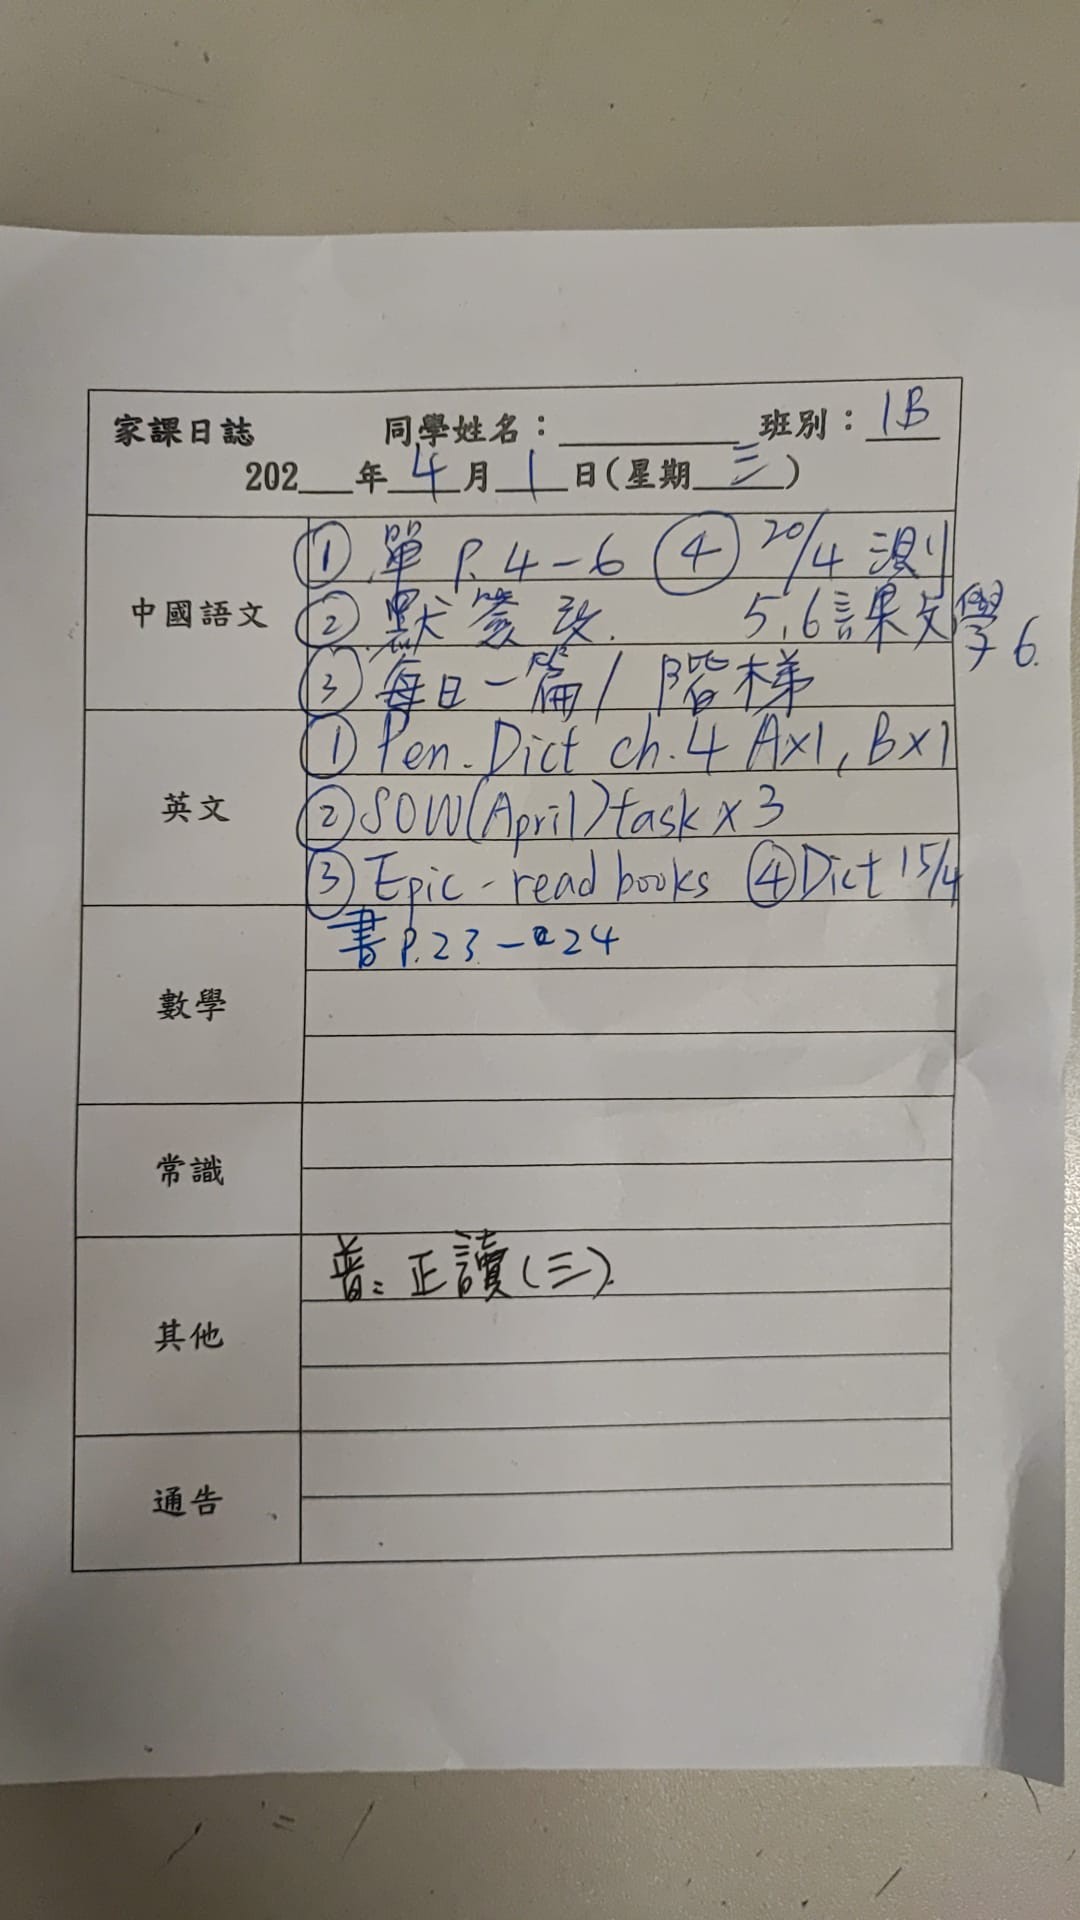 家課日誌 同學姓名：________ 班別：1B
202__年 4 月 1 日(星期 三 )
中國語文
① 單 P.4-6 ④ 20/4 測
② 默簽改. 5,6課文學6.
③ 每日一篇/階梯
英文
① Pen. Dict ch.4 A×1, B×1
② SOW(April) task x 3
③ Epic - read books ④ Dict 15/4
數學
書 P.23-24
常識
其他
普: 正讀(三).
通告